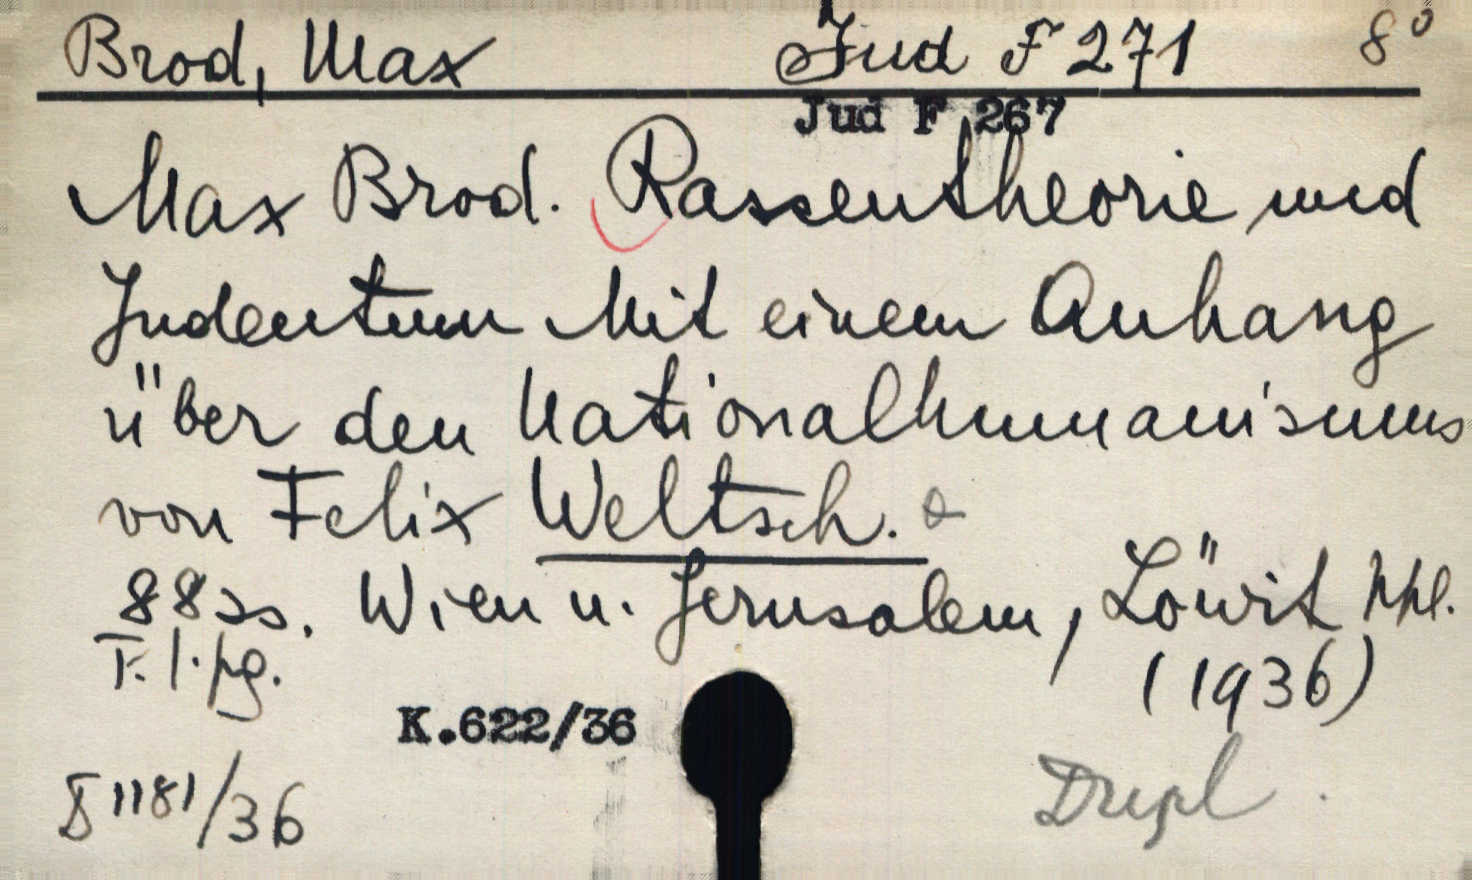 Brod, Max Jud F 271 8°
Jud F 267
Max Brod. Rassentheorie und
Judentum Mit einem Anhang
über den Nationalhumanismus
von Felix Weltsch.
88 ss. Wien u. Jerusalem, Löwit
T. 1. pg. (1936)
K.622/36
1181/36 Dupl.